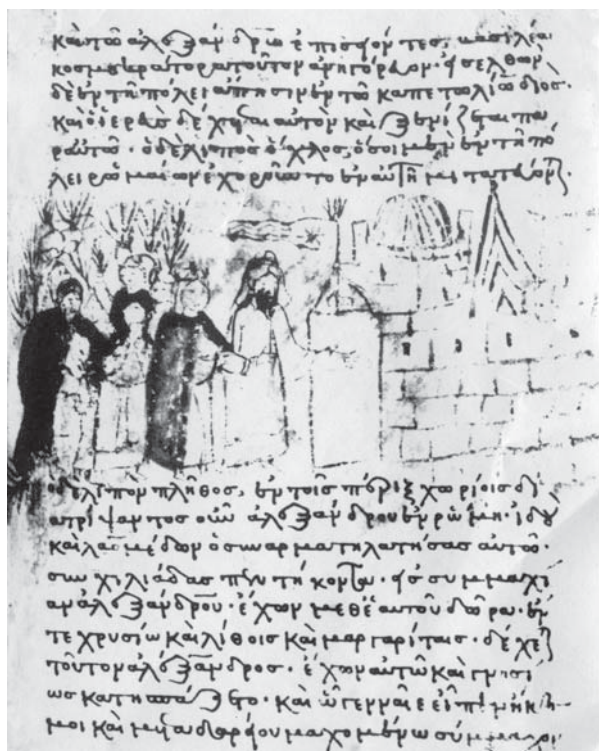 καὶ τῶ ἀλεξάνδρω βασιλέα
κοσμοκράτορα τοῦτον ἀνηγόρευον· εἰσελθὼν
δὲ ἐν τῆ πόλει ἄπησιν ἐν τῶ καπετωλίω διός·
καὶ ὁ ἱερεὺς δέχεται αὐτὸν καὶ ξενίζεται πα
ρ αὐτῶ· ὁ δὲ λιπὸς ὄχλος, ὅσοι μὲν ἐν τῆ πό
λει ῥωμαίων
ὁ δὲ λιπὸν πλῆθος, ἐν τοῖς πέριξ χωρίοις δι
ατρίψαντος οὖν ἀλεξάνδρου ἐν ῥώμη· ἰδοὺ
καὶ λαομέδων ὁ συναρματηλατήσας αὐτῶ·
σὺν χιλιάδας πεντήκοντα· εἰς συμμαχί
αν ἀλεξάνδρου· ἔχων μεθ' ἑαυτοῦ δῶρα· ἔν
τε χρυσίω καὶ λίθοις καὶ μαργαρίταις· δέχεται
τοῦτον ἀλέξανδρος· ἔχων αὐτῶ καὶ γνησί
ως κατησπάζετο· καὶ ὦ γενναῖε εἶπε
μοι καὶ δαρείου μαχομένω